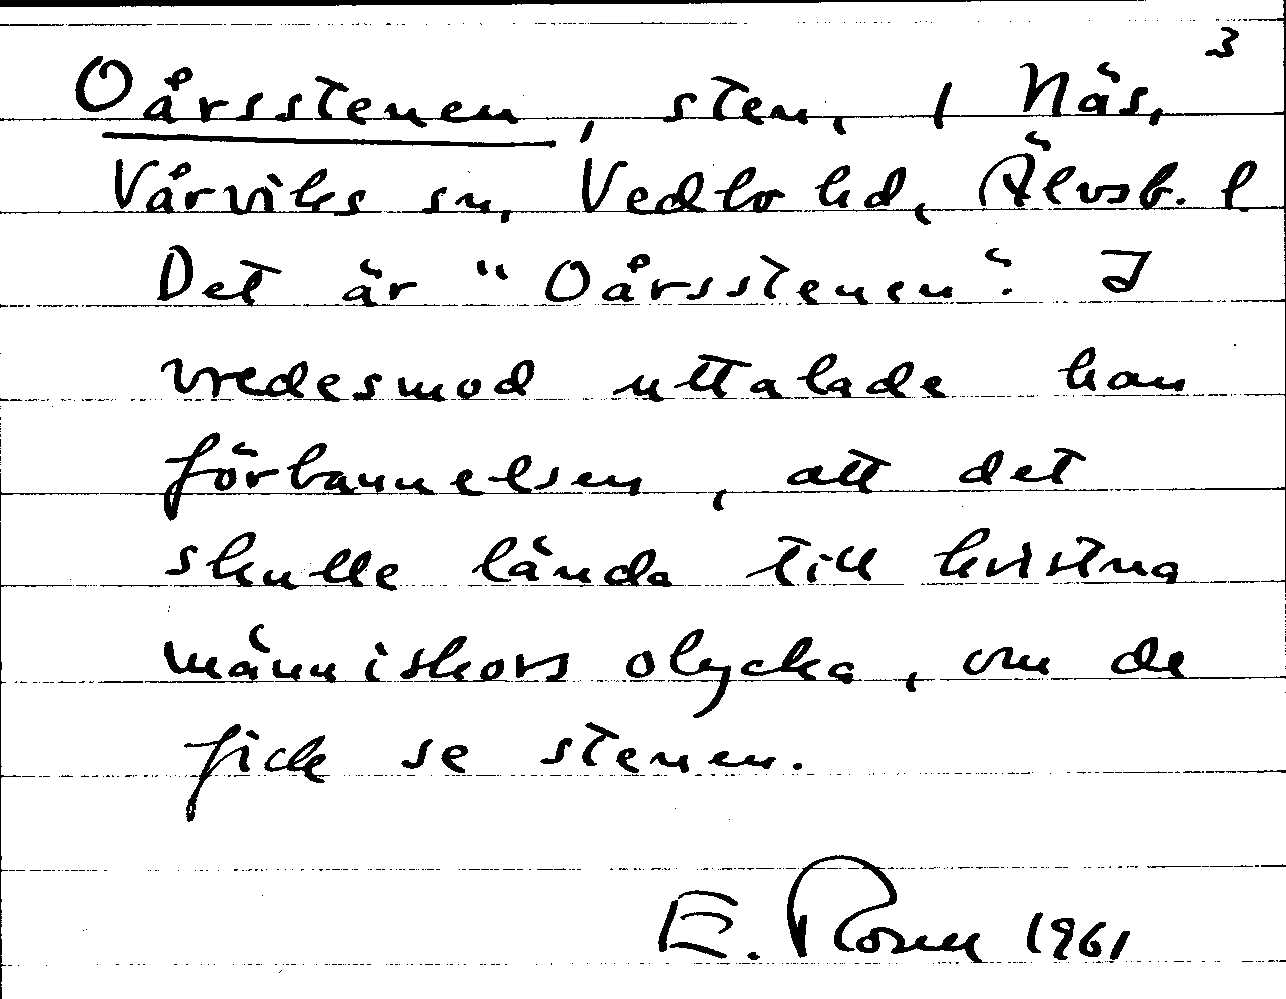 3
Oårsstenen, sten, 1 Näs,
Vårviks sn, Vedbo hd, Älvsb. l.
Det är "Oårsstenen". I
vredesmod uttalade han
förbannelsen, att det
skulle lända till kristna
människors olycka, om de
fick se stenen.
E. Rosen 1961